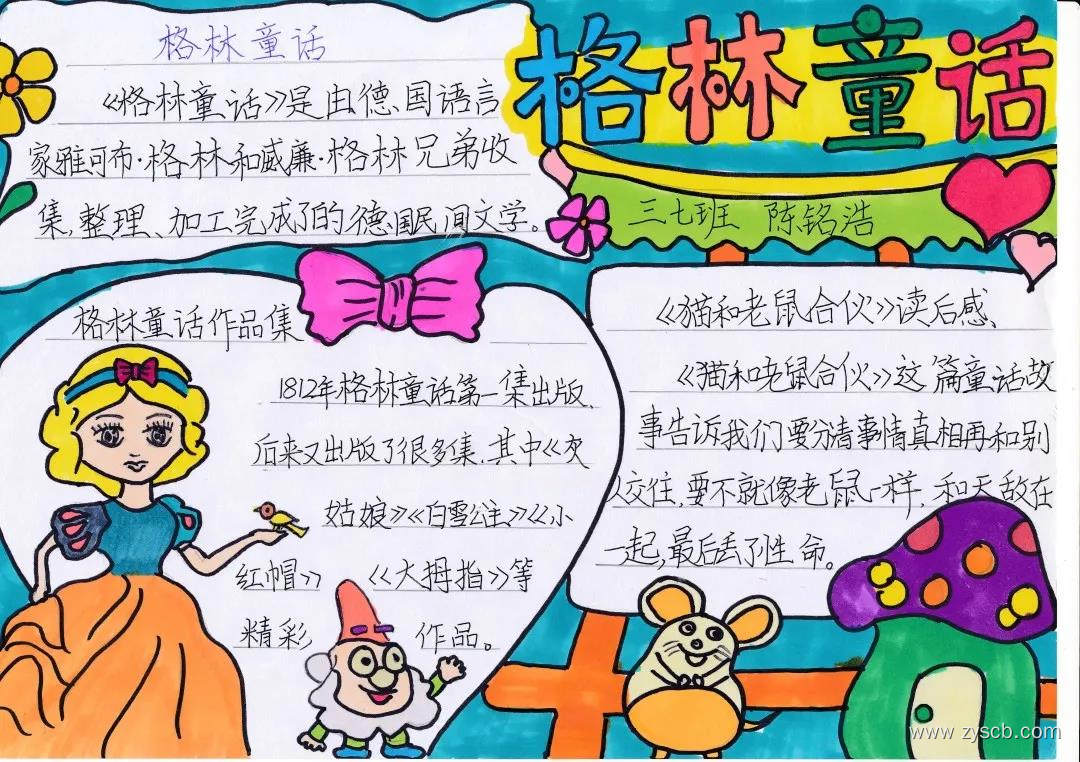 格林童话
格林童话
《格林童话》是由德国语言
家雅可布·格林和威廉·格林兄弟收
集,整理、加工完成了的德国民间文学。
三七班 陈铭浩
格林童话作品集
1812年格林童话第一集出版、
后来又出版了很多集,其中《灰
姑娘》《白雪公主》《小
红帽》》 《大拇指》等
精彩 作品。
《猫和老鼠合伙》读后感、
《猫和老鼠合伙》这篇童话故
事告诉我们要分清事情真相再和别
人交往,要不就像老鼠一样,和天敌在
一起,最后丢了性命。
www.zyscb.com